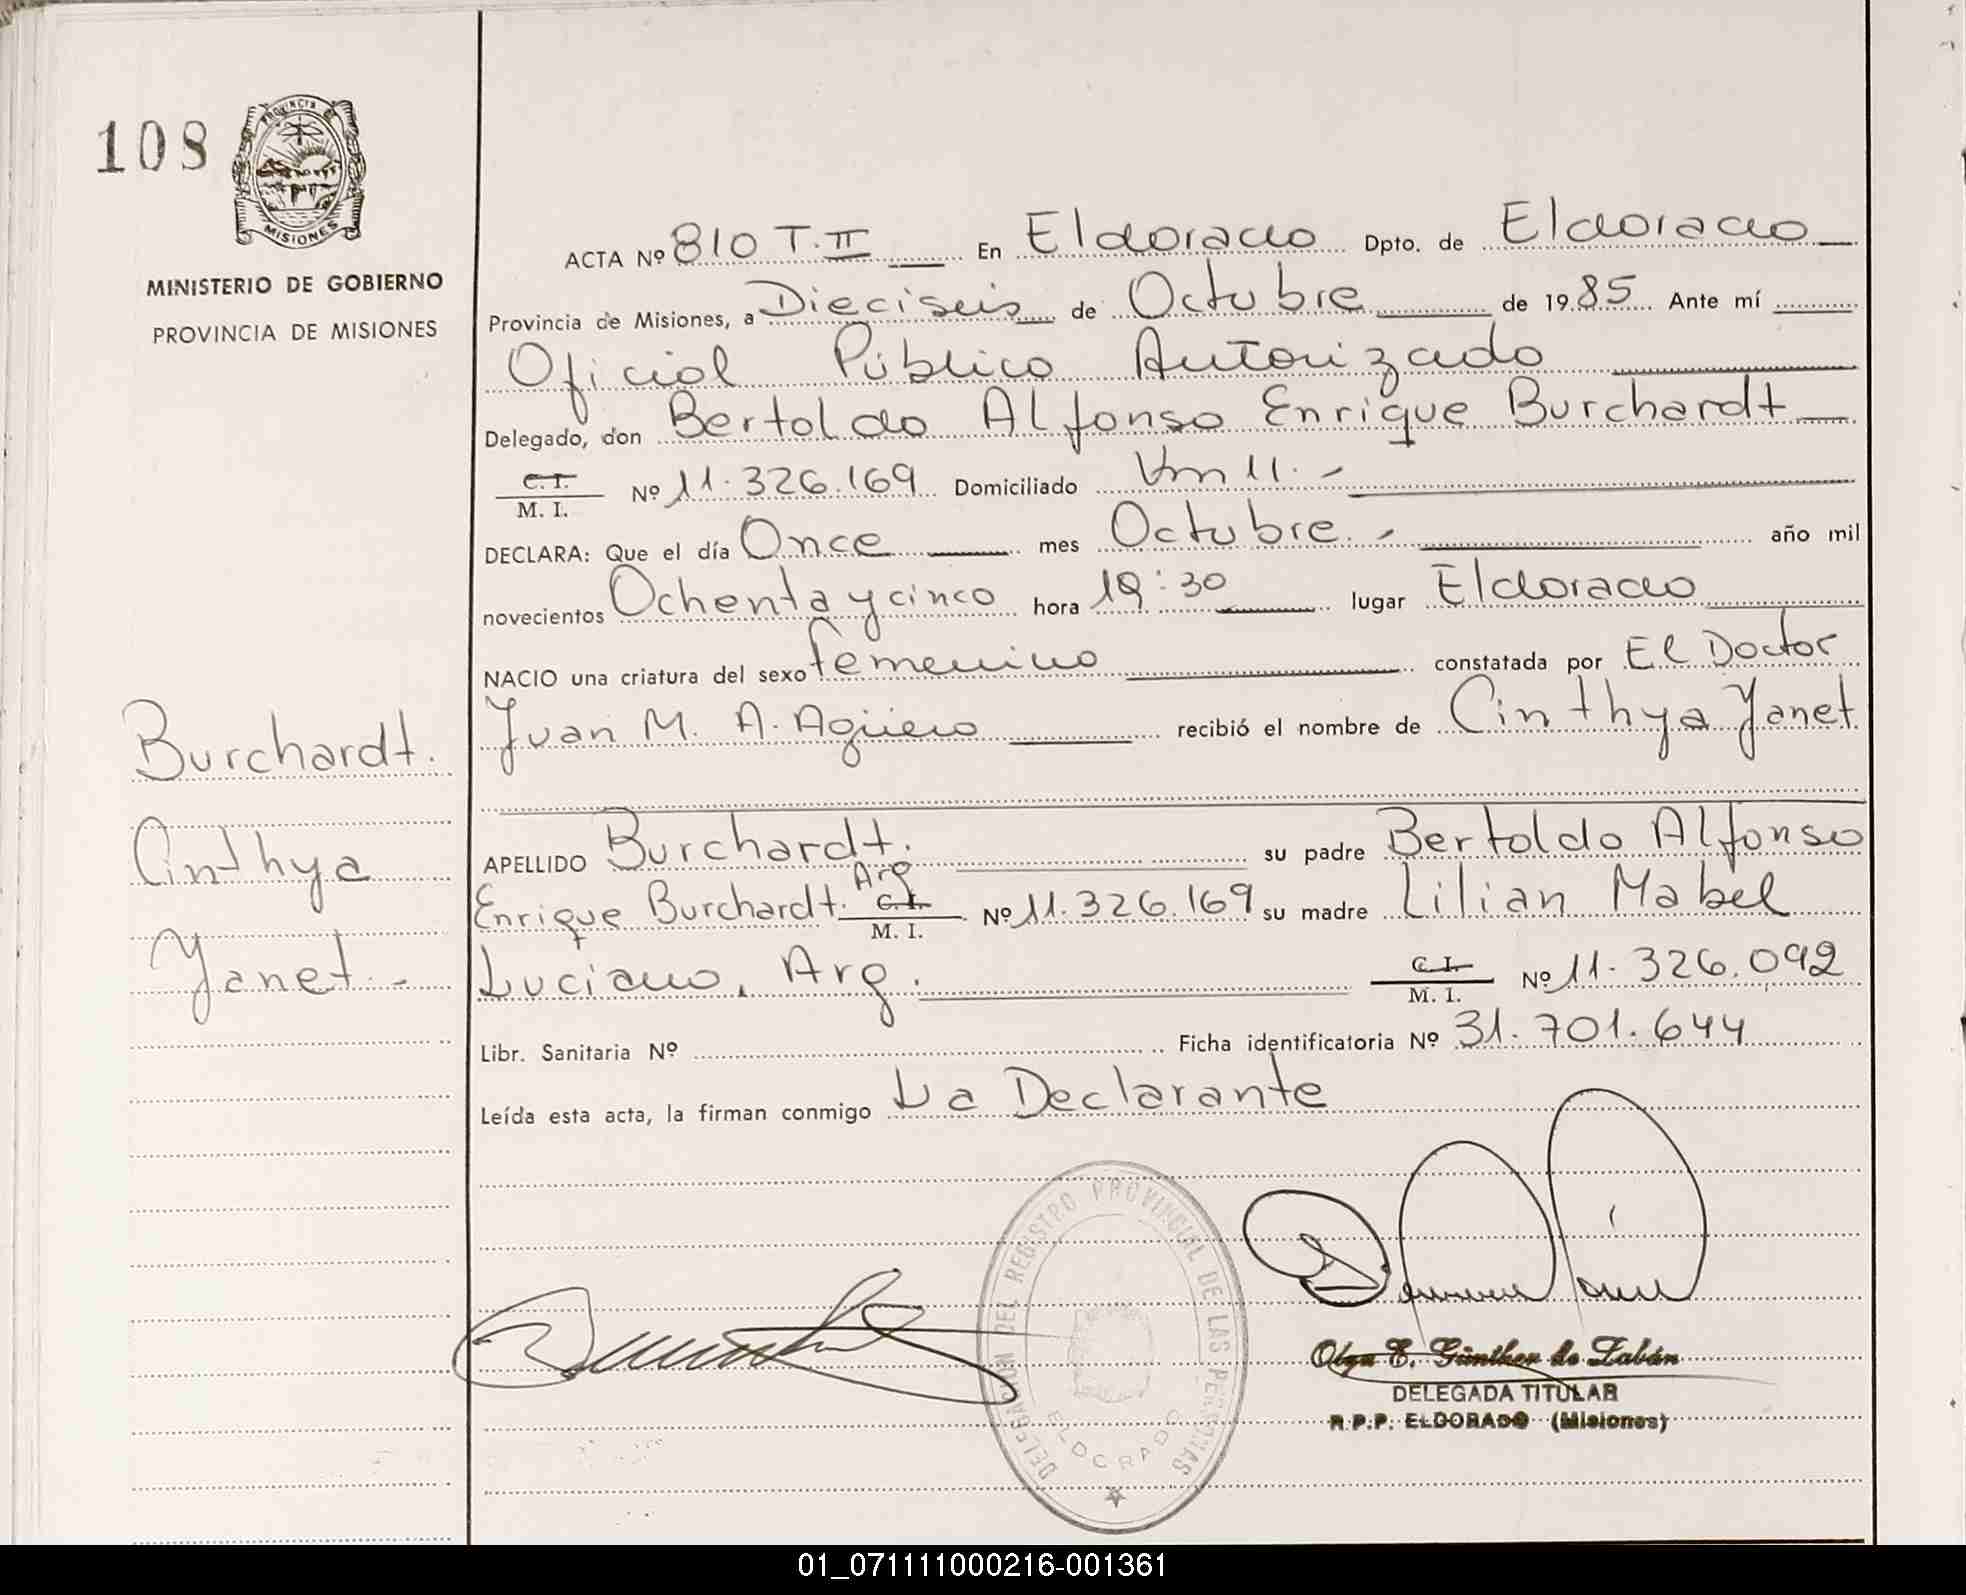 108
PROVINCIA DE
MISIONES
MINISTERIO DE GOBIERNO
PROVINCIA DE MISIONES
Burchardt.
Cinthya
Yanet.-
ACTA Nº 810 T. II En Eldorado Dpto. de Eldorado
Provincia de Misiones, a Dieciseis de Octubre de 1985 Ante mí
Oficial Público Autorizado
Delegado, don Bertoldo Alfonso Enrique Burchardt
C.I.
M. I. Nº 11.326.169 Domiciliado Km 11.-
DECLARA: Que el día Once mes Octubre.- año mil
novecientos Ochenta y cinco hora 19:30 lugar Eldorado
NACIO una criatura del sexo femenino constatada por El Doctor
Juan M. A. Agüero recibió el nombre de Cinthya Yanet
APELLIDO Burchardt. su padre Bertoldo Alfonso
Enrique Burchardt. Arg C.I. M. I. Nº 11.326.169 su madre Lilian Mabel
Luciano, Arg. C.I. M. I. Nº 11.326.092
Libr. Sanitaria Nº Ficha identificatoria Nº 31.701.644
Leída esta acta, la firman conmigo La Declarante
DELEGACION DEL REGISTRO PROVINCIAL DE LAS PERSONAS
ELDORADO
Olga E. Günther de Zabán
DELEGADA TITULAR
R.P.P. ELDORADO (Misiones)
01_071111000216-001361